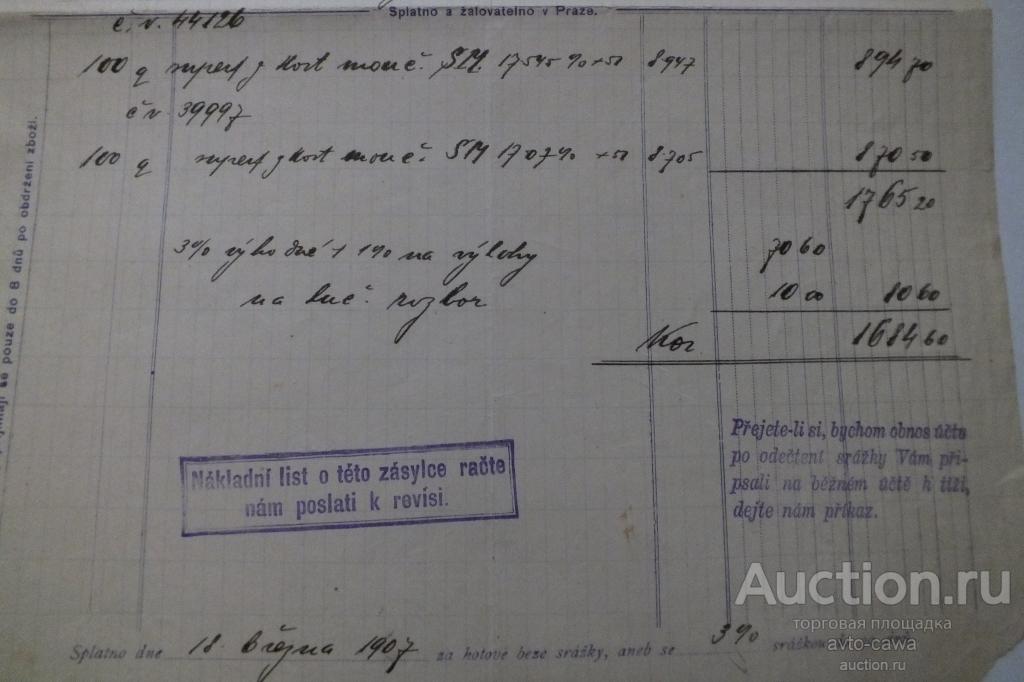 Splatno a žalovatelno v Praze.
č. v. 44126
100 q superf z kost mouč. SM 17545 % + sl 8947 894 70
č v 39997
100 q superf z kost mouč. SM 1707 % + sl 8705 870 50
1765 20
3% výhodné + 1% na výlohy 70 60
na luč. rozbor 10 00 80 60
Kor 1684 60
se pouze do 8 dnů po obdržení zboží.
Přejete-li si, bychom obnos účtu
po odečtení srážky Vám při-
psali na běžném účtě k tíži,
dejte nám příkaz.
Nákladní list o této zásylce račte
nám poslati k revísi.
Splatno dne 18. března 1907 za hotové beze srážky, aneb se 3% srážkou
Auction.ru
торговая площадка
avto-cawa
auction.ru